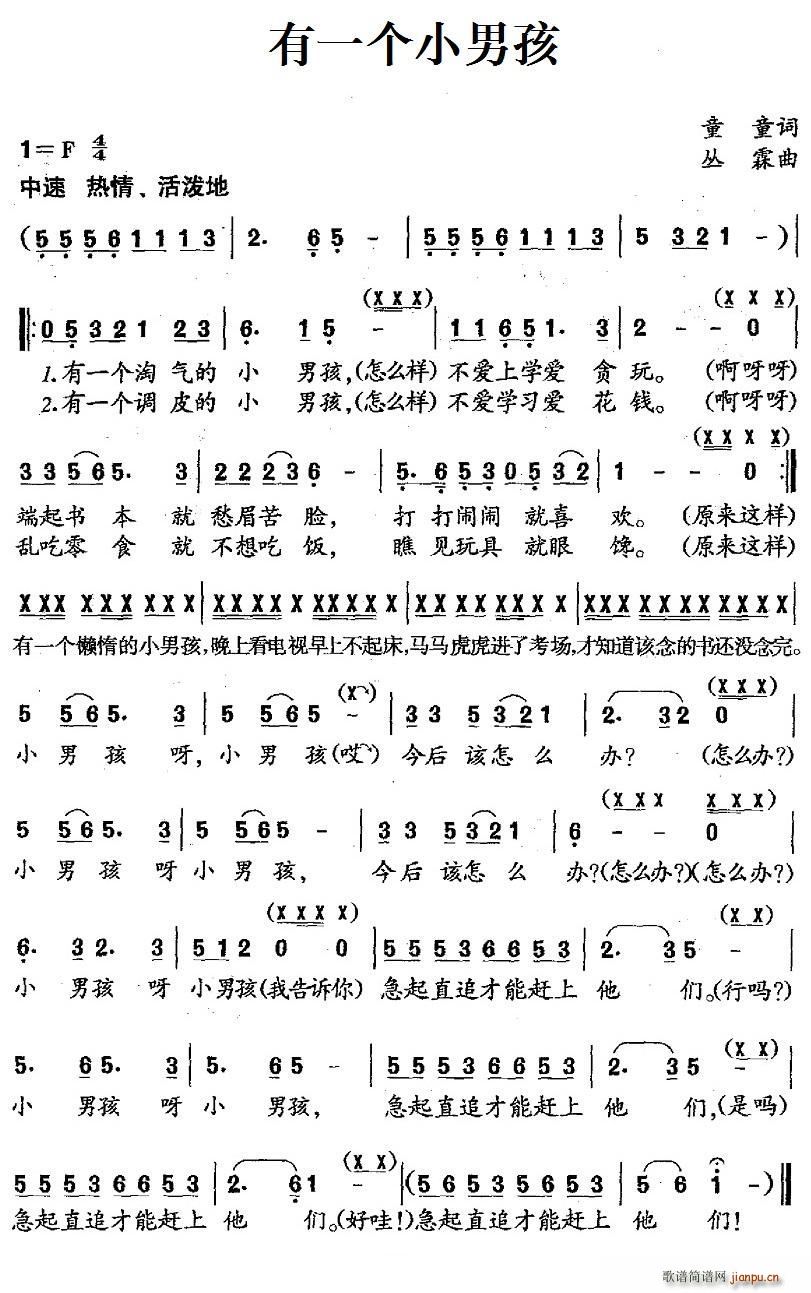 有一个小男孩
童 童词
1=F 4/4
丛 霖曲
中速 热情、活泼地
(5 5 5 6 1 1 1 3 | 2. 6 5 - | 5 5 5 6 1 1 1 3 | 5 3 2 1 - ) |
(X X X) (X X X)
‖: 0 5 3 2 1 2 3 | 6. 1 5 - | 1 1 6 5 1. 3 | 2 - - 0
1.有一个淘 气的 小 男孩,(怎么样) 不爱上学爱 贪 玩。 (啊呀呀)
2.有一个调 皮的 小 男孩,(怎么样) 不爱学习爱 花 钱。 (啊呀呀)
(X X X X)
3 3 5 6 5. 3 | 2 2 2 3 6 - | 5. 6 5 3 0 5 3 2 | 1 - - 0 :‖
端起书 本 就 愁眉苦 脸, 打 打闹闹 就喜 欢。 (原来这样)
乱吃零 食 就 不想吃 饭, 瞧 见玩具 就眼 馋。 (原来这样)
X X X X X X X X X X | X X X X X X X X X X | X X X X X X X X X | X X X X X X X X X X X
有一个懒惰的小男孩,晚上看电视早上不起床,马马虎虎进了考场,才知道该念的书还没念完。
(X) (X X X)
5 5 6 5. 3 | 5 5 6 5 - | 3 3 5 3 2 1 | 2. 3 2 0
小 男 孩 呀, 小 男 孩(哎) 今后 该怎 么 办? (怎么办?)
(X X X X X X)
5 5 6 5. 3 | 5 5 6 5 - | 3 3 5 3 2 1 | 6 - - 0
小 男 孩 呀 小 男 孩, 今后 该怎 么 办?(怎么办?)(怎么办?)
(X X X X) (X X)
6. 3 2. 3 | 5 1 2 0 0 | 5 5 5 3 6 6 5 3 | 2. 3 5 -
小 男孩 呀 小男孩(我告诉你) 急起直追才能赶上 他 们。(行吗?)
(X X)
5. 6 5. 3 | 5. 6 5 - | 5 5 5 3 6 6 5 3 | 2. 3 5 -
小 男孩 呀 小 男孩, 急起直追才能赶上 他 们,(是吗)
(X X)
5 5 5 3 6 6 5 3 | 2. 6 1 - | (5 6 5 3 5 6 5 3 | 5 6 i - ) ‖
急起直追才能赶上 他 们。(好哇!)急起直追才能赶上 他 们!
歌谱简谱网 jianpu.cn